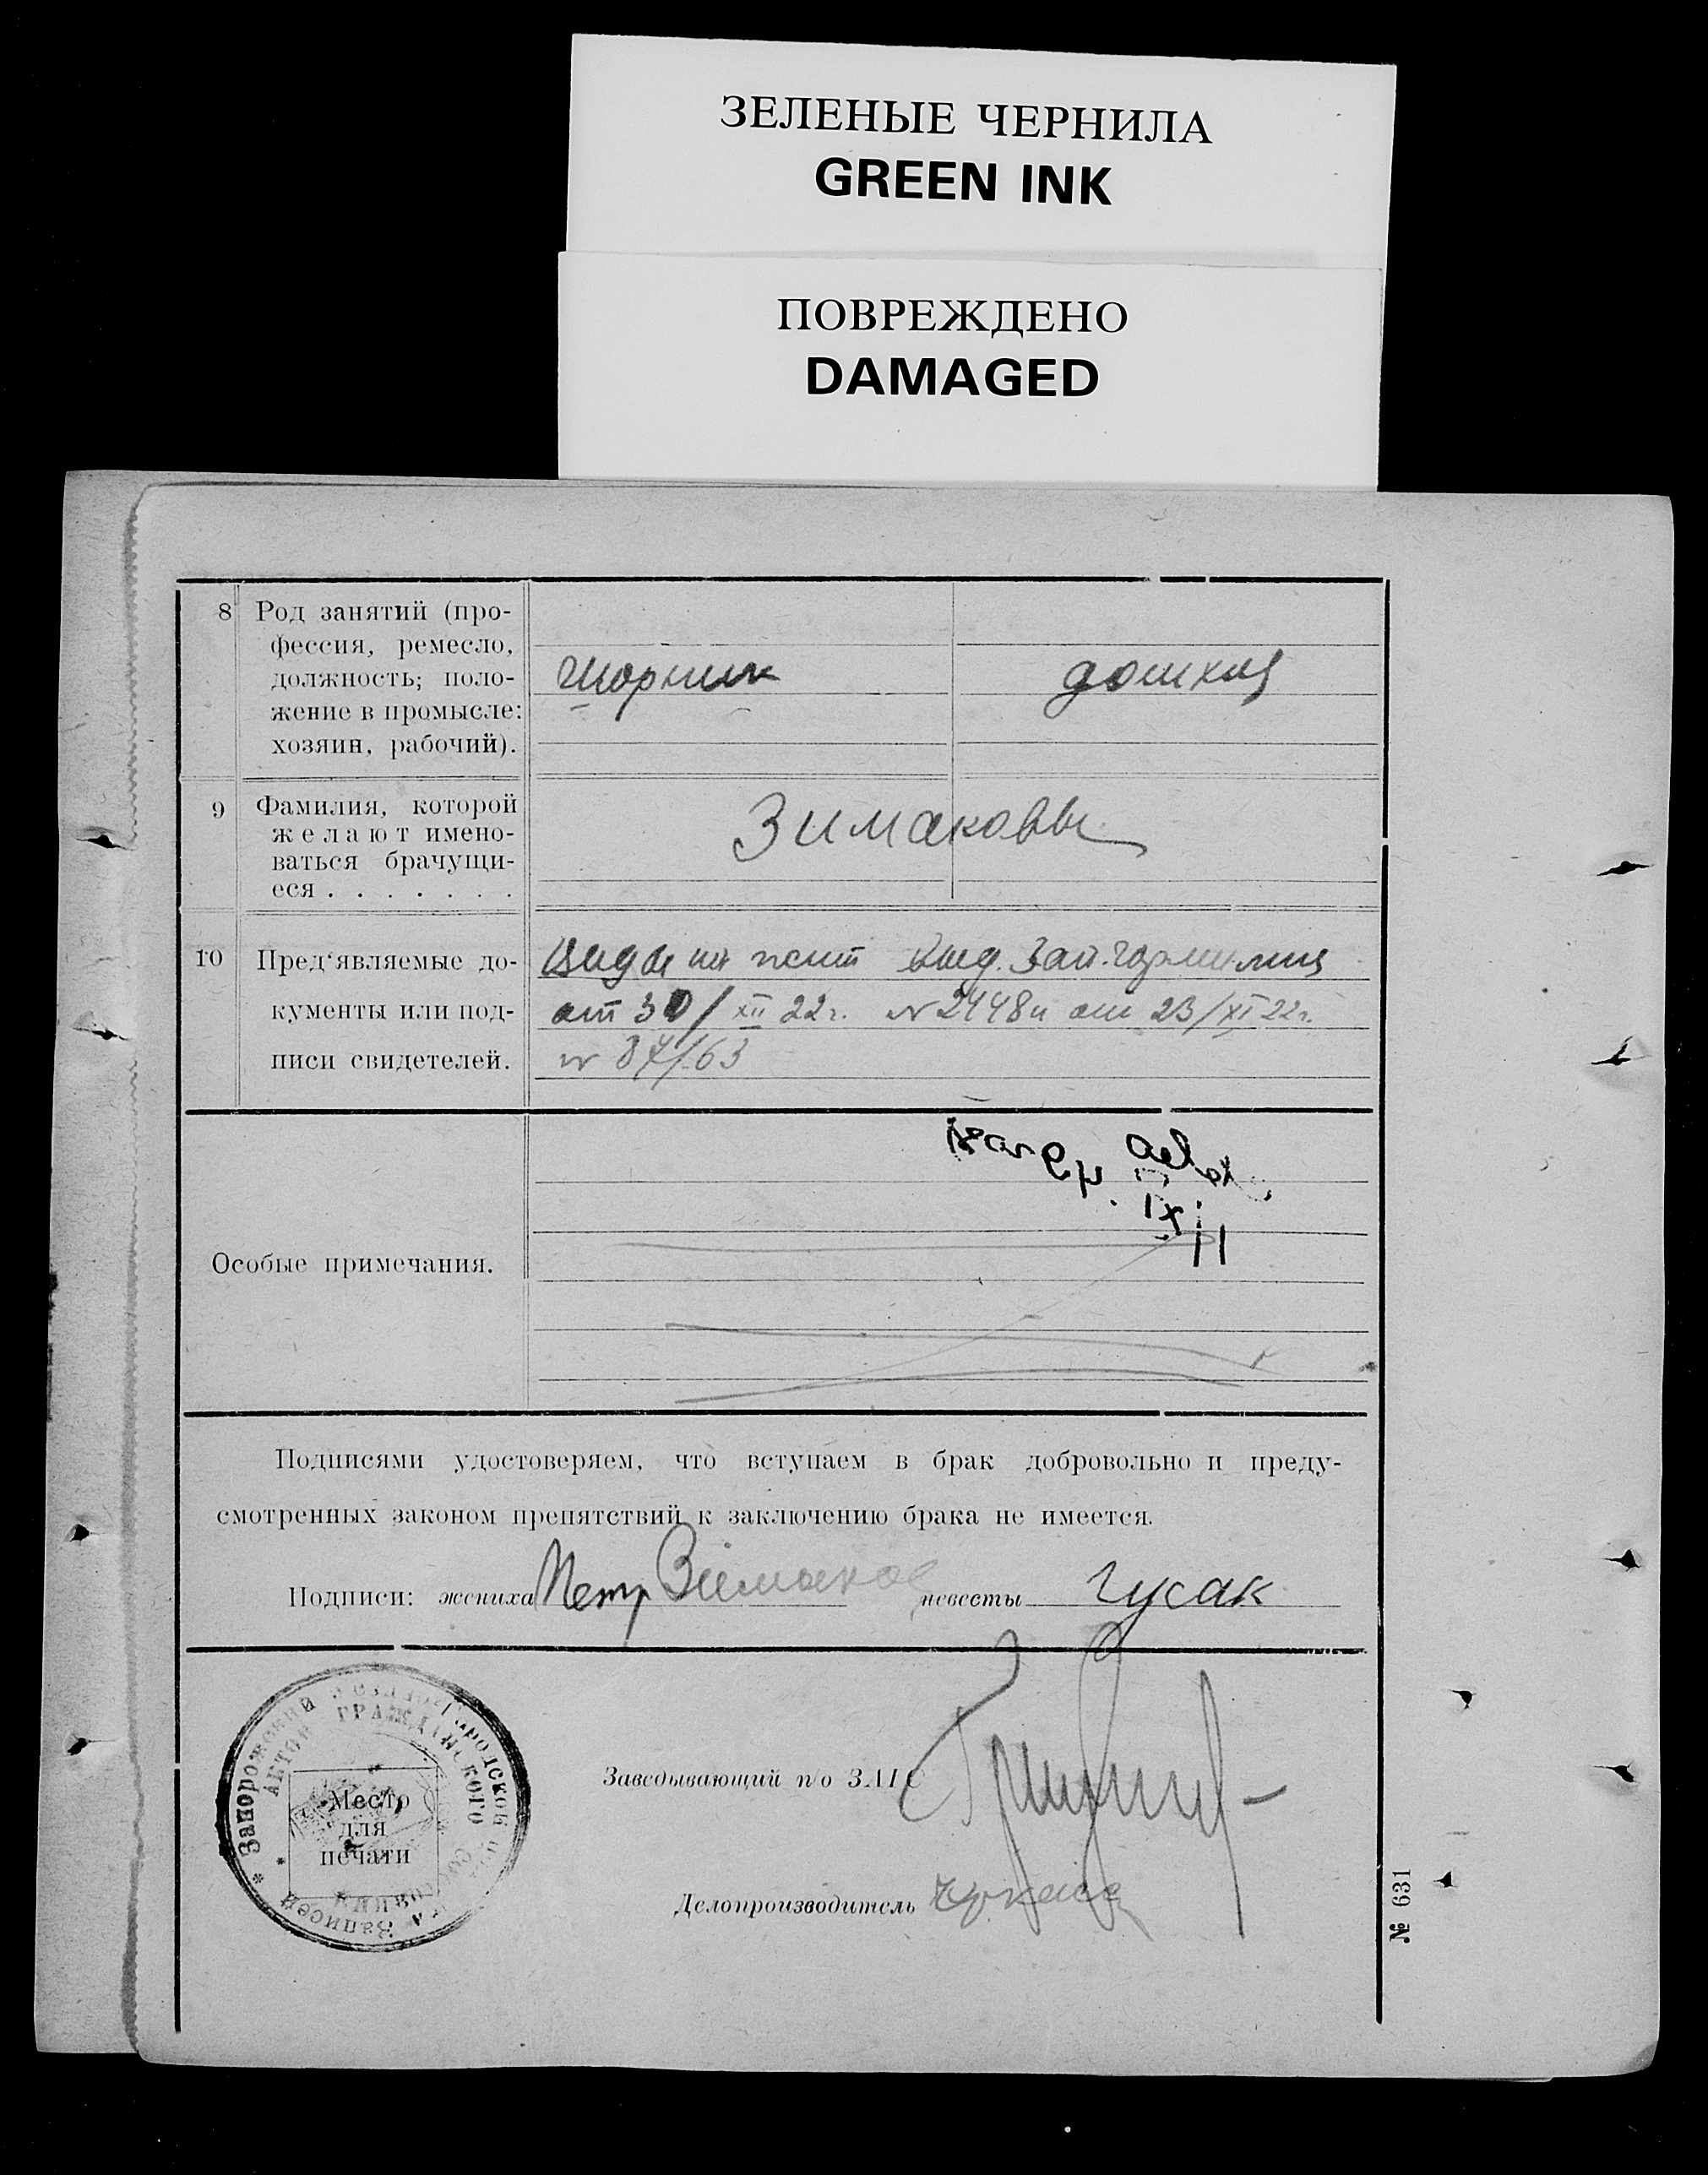 ЗЕЛЕНЫЕ ЧЕРНИЛА
GREEN INK
ПОВРЕЖДЕНО
DAMAGED
8 Род занятий (про-
фессия, ремесло,
должность; поло-
жение в промысле:
хозяин, рабочий).
шорник
домхоз
9 Фамилия, которой
желают имено-
ваться брачущи-
еся . . . . . . .
Зимаковы
10 Пред'являемые до-
кументы или под-
писи свидетелей.
Виды на жит выд. Зап. гормилиц
от 30/XII 22г. № 2448 и от 23/XI 22г.
№ 87/63
Особые примечания.
Подписями удостоверяем, что вступаем в брак добровольно и преду-
смотренных законом препятствий к заключению брака не имеется.
Подписи: жениха Петр Зимаков невесты Гусак
* Запорожский Городской
Записей
АКТОВ ГРАЖДАНСКОГО СОСТОЯНИЯ *
Место
для
печати
Заведывающий п/о ЗАГС
Делопроизводитель
№ 631